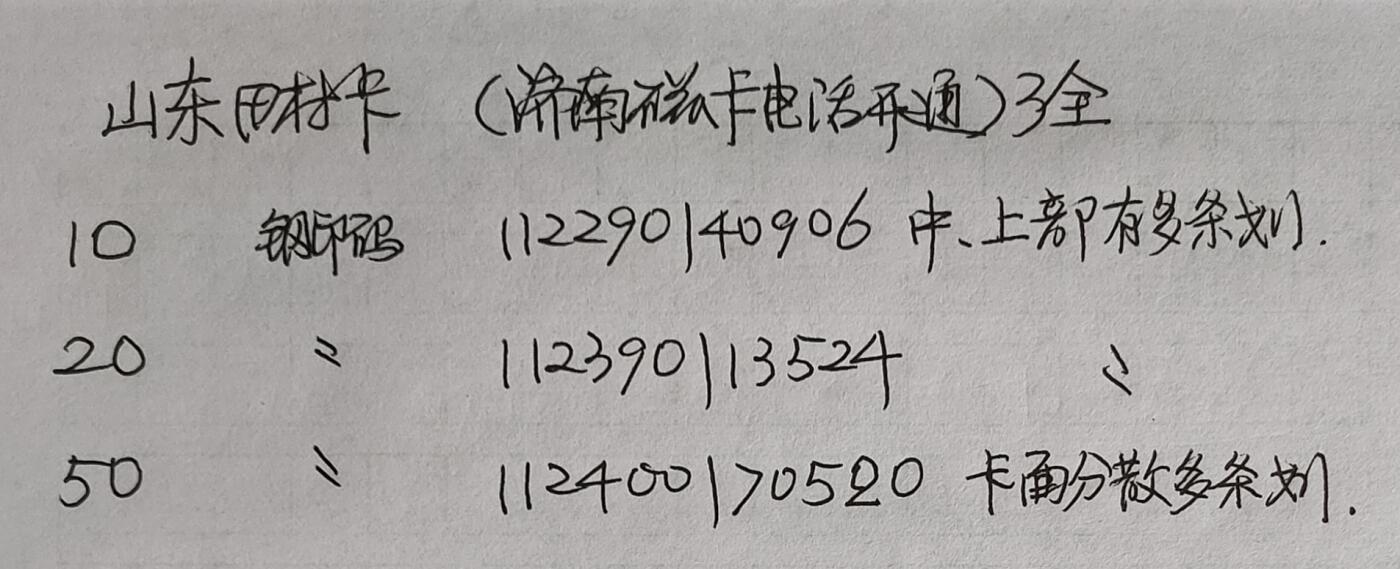 山东田村卡 (济南磁卡电话开通)3全
10 钢印码 112290140906 中、上部有多条划.
20 〃 112390113524 〃
50 〃 112400170520 卡面分散多条划.